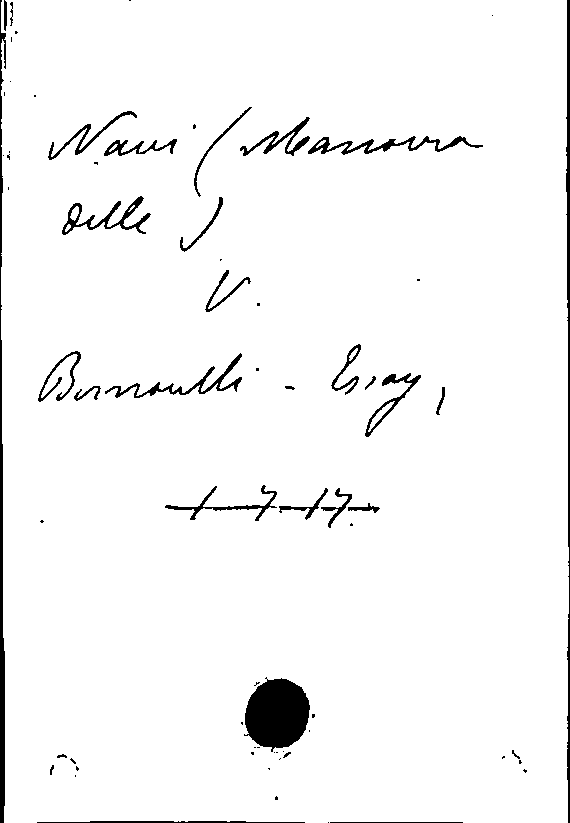 Navi (Manovra
delle)
V.
Bernoulli - Essay,
1 7 17